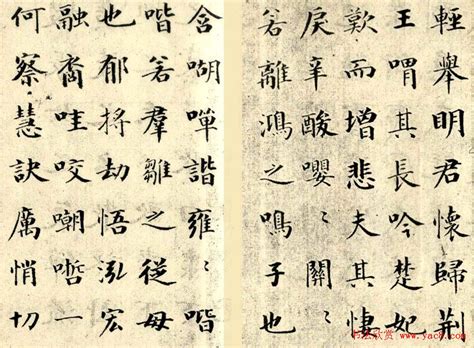 輕舉明君懷歸荊
王喟其長吟楚妃
歎而增悲夫其悽
戾辛酸嚶〻關〻
若離鴻之鳴子也
含喖嘽諧雍〻喈
〻若羣雛之從母
也郁捋劫悟泓宏
融裔哇咬嘲哳一
何察慧訣厲悄切
书法欣赏 www.yac8.com